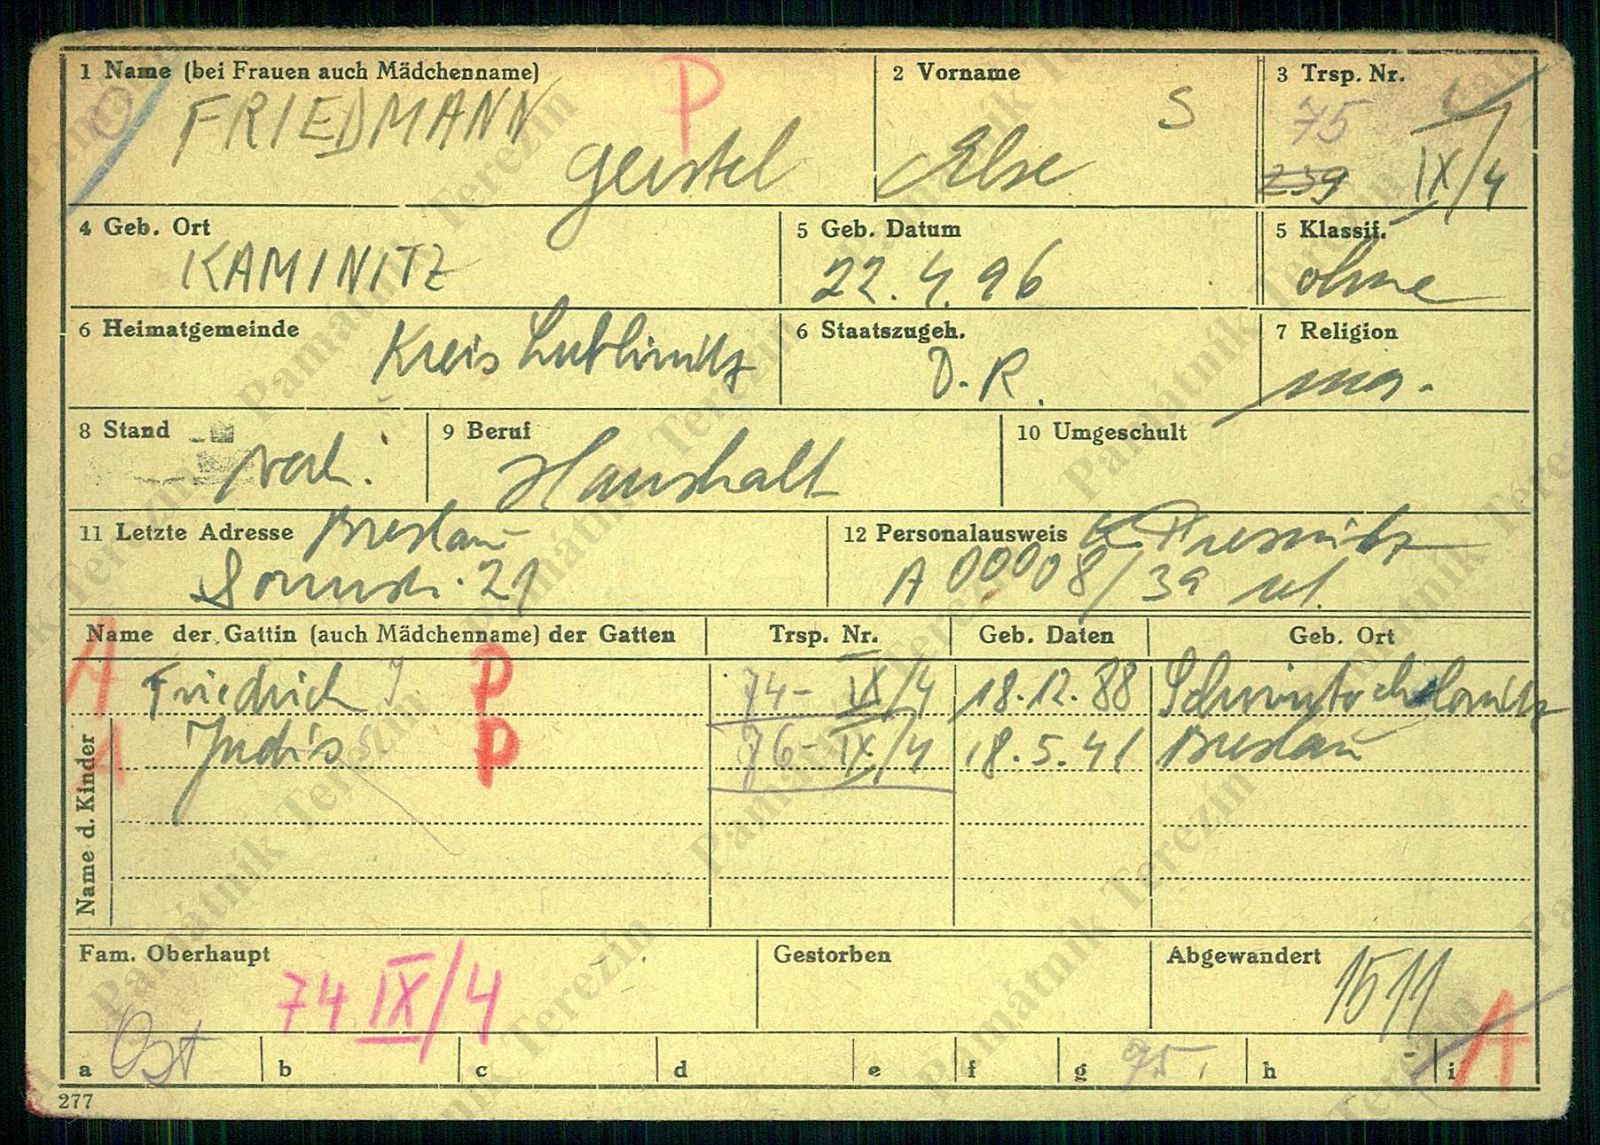 1 Name (bei Frauen auch Mädchenname)
FRIEDMANN
P
Gerstel
2 Vorname
S
Else
3 Trsp. Nr.
75
239
IX/4
4 Geb. Ort
KAMINITZ
5 Geb. Datum
22.4.96
5 Klassif.
ohne
6 Heimatgemeinde
Kreis Lublinitz
6 Staatszugeh.
D.R.
7 Religion
mos.
8 Stand
verh.
9 Beruf
Haushalt
10 Umgeschult
11 Letzte Adresse Breslau
Sonnstr. 21
12 Personalausweis
A 00008/39
Name der Gattin (auch Mädchenname) der Gatten
Trsp. Nr.
Geb. Daten
Geb. Ort
A Friedrich P 74- IX/4 18.12.88
A Judis P 76- IX/4 18.5.41 Breslau
Name d. Kinder
Fam. Oberhaupt
74 IX/4
Gestorben
Abgewandert
1511
A
a Ost b c d e f g 75 h i
277
Památník Terezín